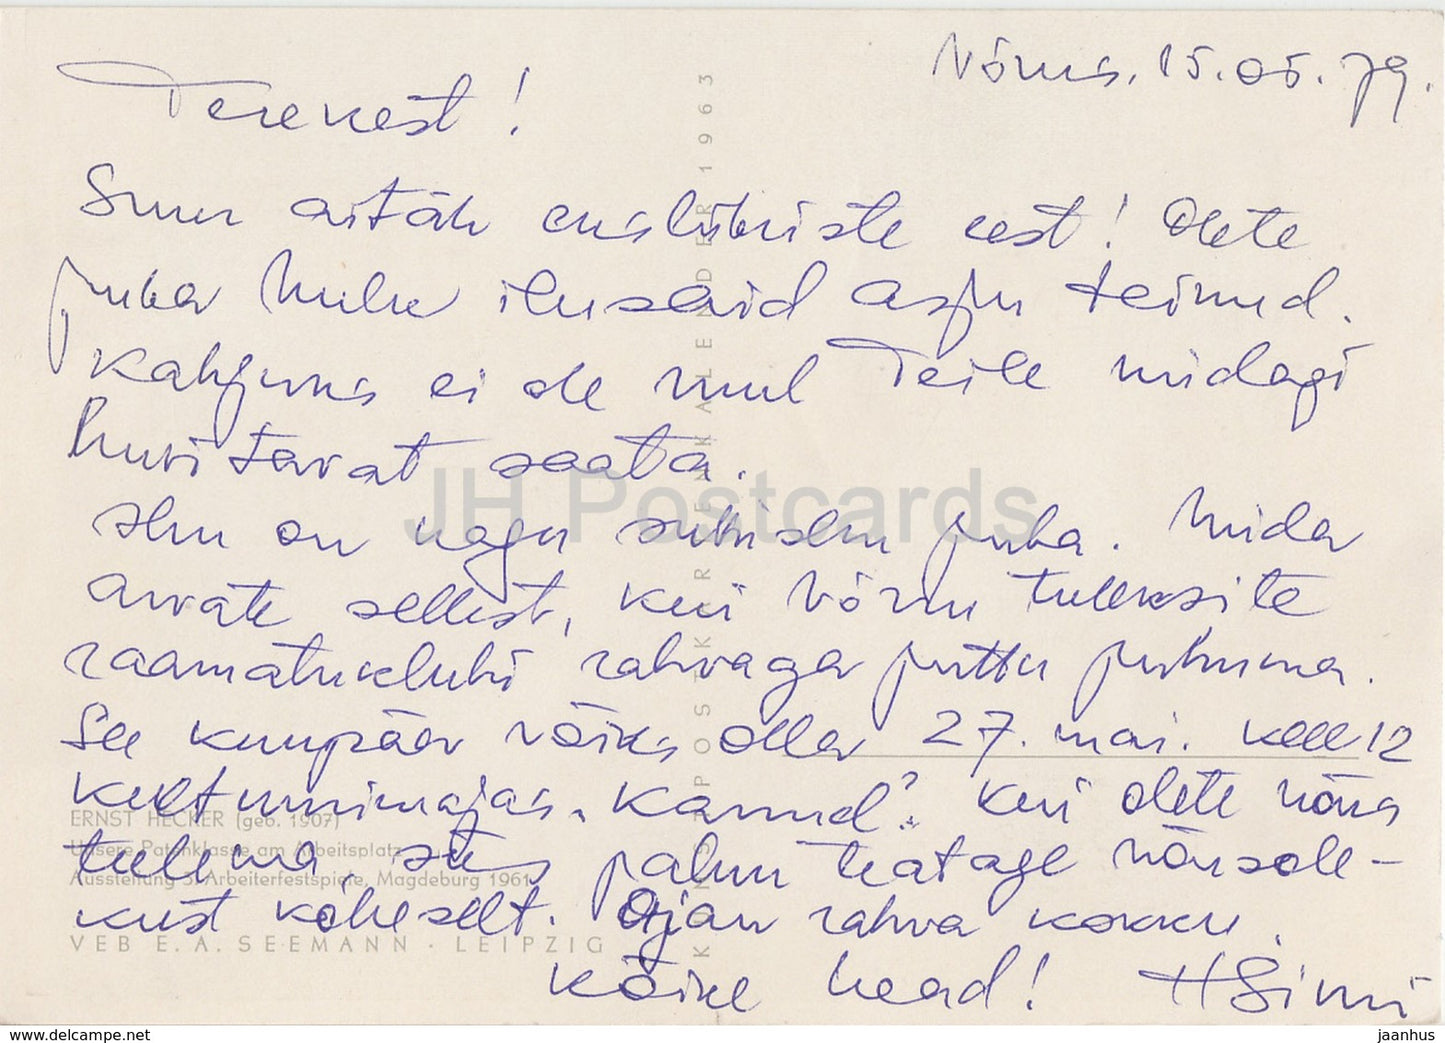 Võrus, 15.05.79.
Terekest!
Suur aitäh eksliibriste eest! Olete
juba hulu ilusaid asju teinud.
Kahjuks ei ole mul Teile midagi
huvitavat saata.
Elu on nagu sukiselu juba. Mida
arvate sellest, kui Võrru tuleksite
raamatuklubi rahvaga juttu puhuma.
See kuupäev võiks olla 27. mai. kell 12
kultuurimajas "Kannel". Kui olete nõus
tulema, siis palun teatage nõusole-
kust kõheselt. Ajan rahva kokku.
Kõike head! H Simi
ERNST HECKER (geb. 1907)
Unsere Patenklasse am Arbeitsplatz
Ausstellung 3. Arbeiterfestspiele, Magdeburg 1961
VEB E. A. SEEMANN · LEIPZIG
KUNSTPOSTKARTENKALENDER 1963
JH Postcards
www.delcampe.net
jaanhus